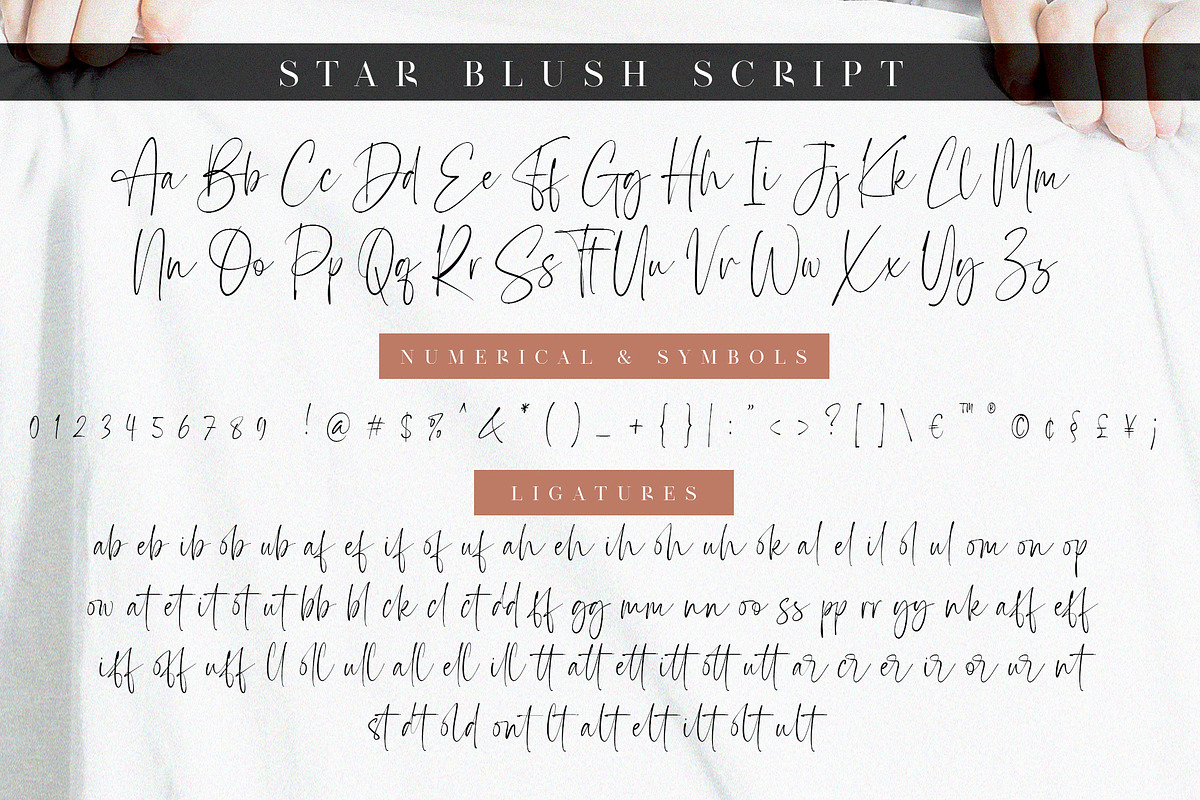 STAR BLUSH SCRIPT
Aa Bb Cc Dd Ee Ff Gg Hh Ii Jj Kk Ll Mm
Nn Oo Pp Qq Rr Ss Tt Uu Vv Ww Xx Yy Zz
NUMERICAL & SYMBOLS
0 1 2 3 4 5 6 7 8 9 ! @ # $ % ^ & * ( ) _ + { } | : " < > ? [ ] \ € ™ ® © ¢ § £ ¥ ¡
LIGATURES
ab eb ib ob ub af ef if of uf ah eh ih oh uh ok al el il ol ul om on op
ow at et it ot ut bb bl ck cl ct dd ff gg mm nn oo ss pp rr yy nk aff eff
iff off uff ll oll ull all ell ill tt att ett itt ott utt ar cr er ir or ur nt
st dt old ont lt alt elt ilt olt ult